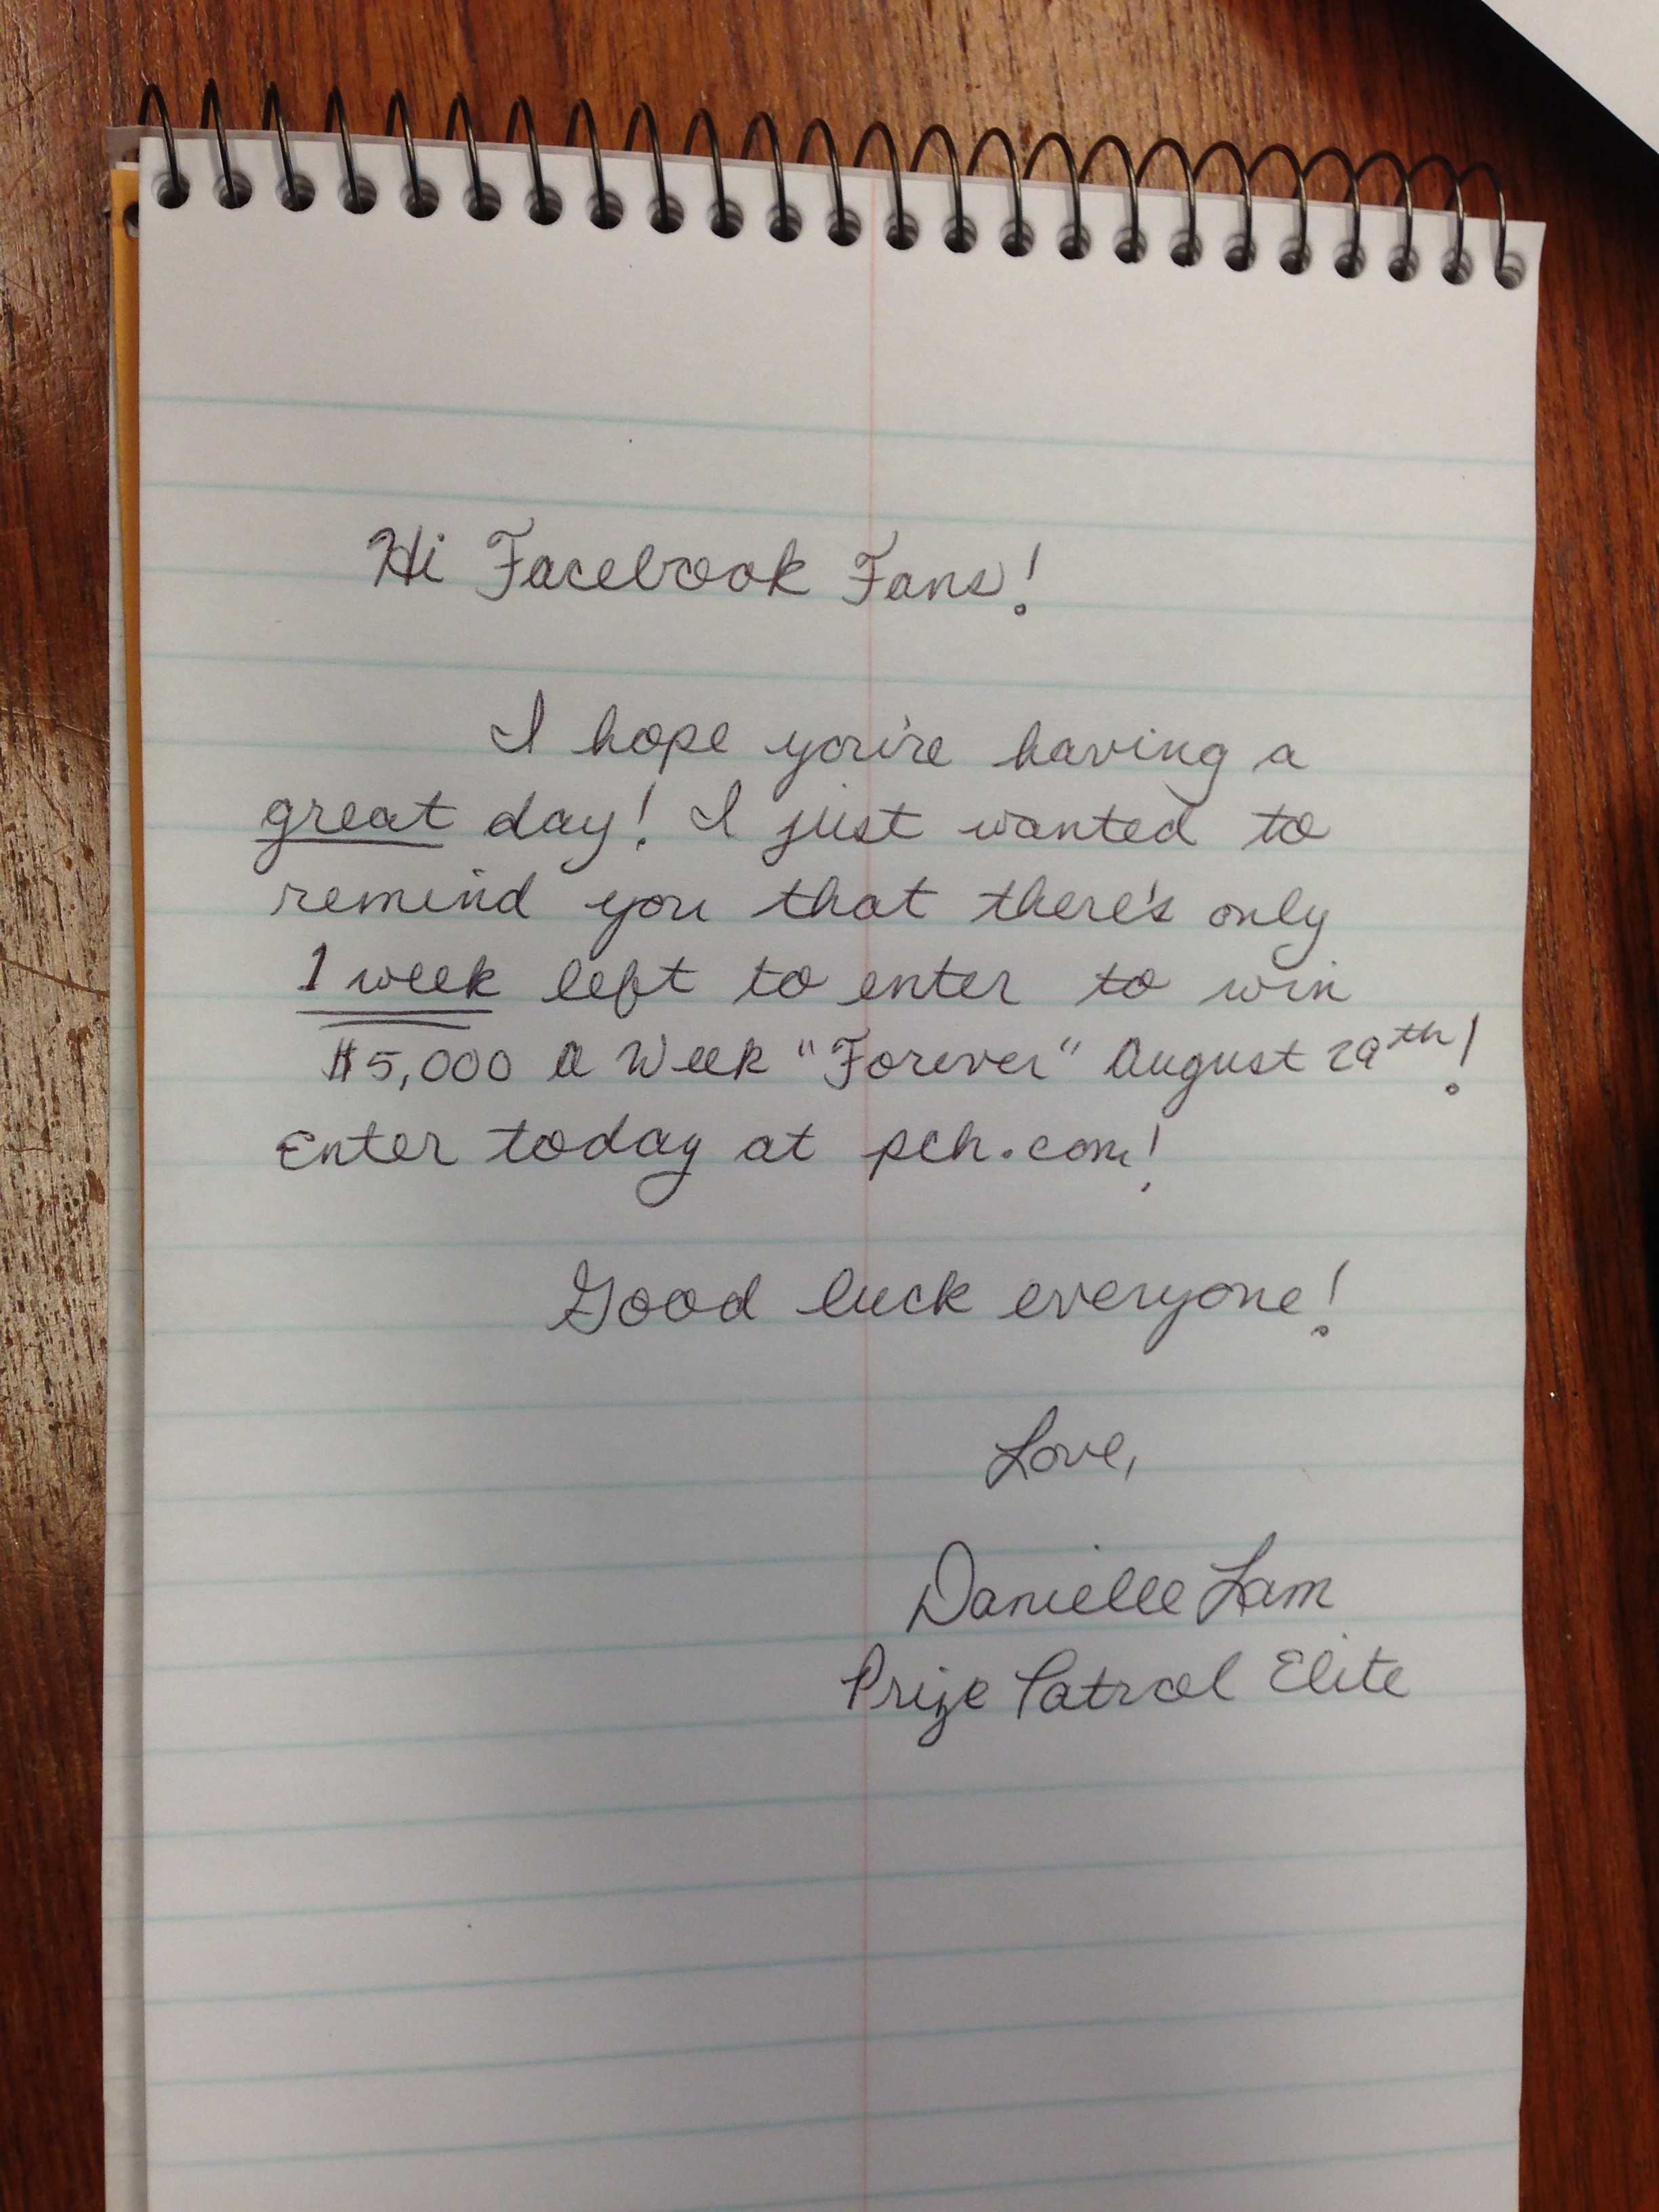 Hi Facebook Fans!
I hope you're having a
great day! I just wanted to
remind you that there's only
1 week left to enter to win
$5,000 A Week "Forever" August 29th!
Enter today at pch.com!
Good luck everyone!
Love,
Danielle Lam
Prize Patrol Elite